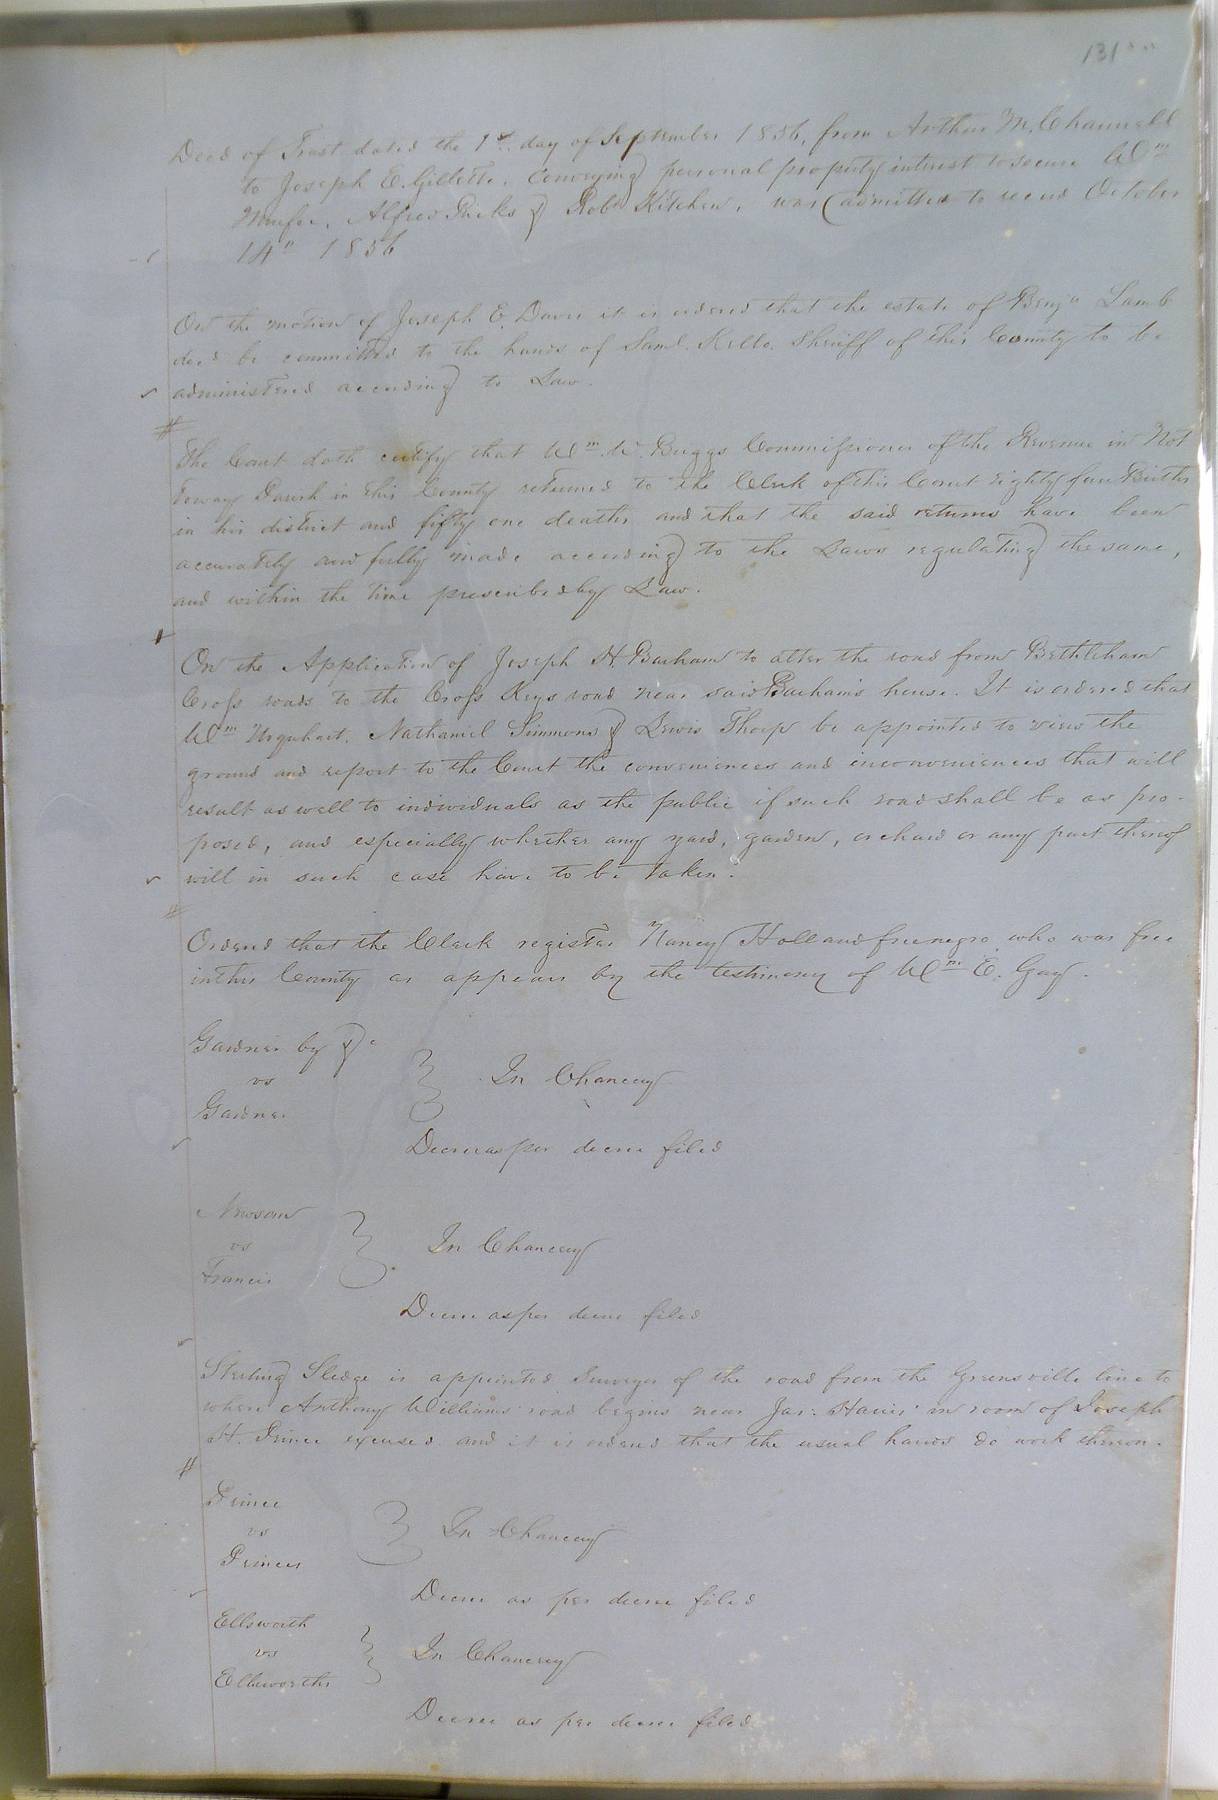 131
Deed of Trust dated the 1st day of September 1856, from Arthur M. Channell
to Joseph E. Gillette. Conveying personal property interest to secure Wm
Alfred Ricks & Robt Kitchen, was admitted to record October
14th 1856
On the motion of Joseph E. Davis it is ordered that the estate of Benjn Lamb
decd be committed to the hands of Saml. Kello. Sheriff of this County to be
administered according to Law.
The Court doth certify that Wm. W. Briggs Commissioner of the Revenue in Not
toway Parish in this County returned to the Clerk of this Court Eighty four Births
in his district and fifty one deaths and that the said returns have been
accurately and fully made according to the Laws regulating the same,
and within the time prescribed by Law.
On the Application of Joseph H. Barham to alter the road from Bethleham
Cross roads to the Cross Keys road near said Barham's house. It is ordered that
Wm Urquhart. Nathaniel Simmons & Lewis Thorp be appointed to view the
ground and report to the Court the conveniences and inconveniences that will
result as well to individuals as the public if such road shall be as pro-
posed, and especially whether any yard, garden, orchard or any part thereof
will in such case have to be taken.
Ordered that the Clerk register Nancy Holland free negro who was free
in this County as appears by the testimony of Wm E. Gay.
Gardner by &c
vs
Gardner
In Chancery
Decree as per decree filed
Newsom
vs
Francis
In Chancery
Decree as per decree filed
Sterling Sledge is appointed Surveyor of the road from the Greensville line to
where Anthony Williams road begins near Jas: Harris' in room of Joseph
H. Prince excused and it is ordered that the usual hands do work thereon.
Prince
vs
Princes
In Chancery
Decree as per decree filed
Ellsworth
vs
Ellsworths
In Chancery
Decree as per decree filed